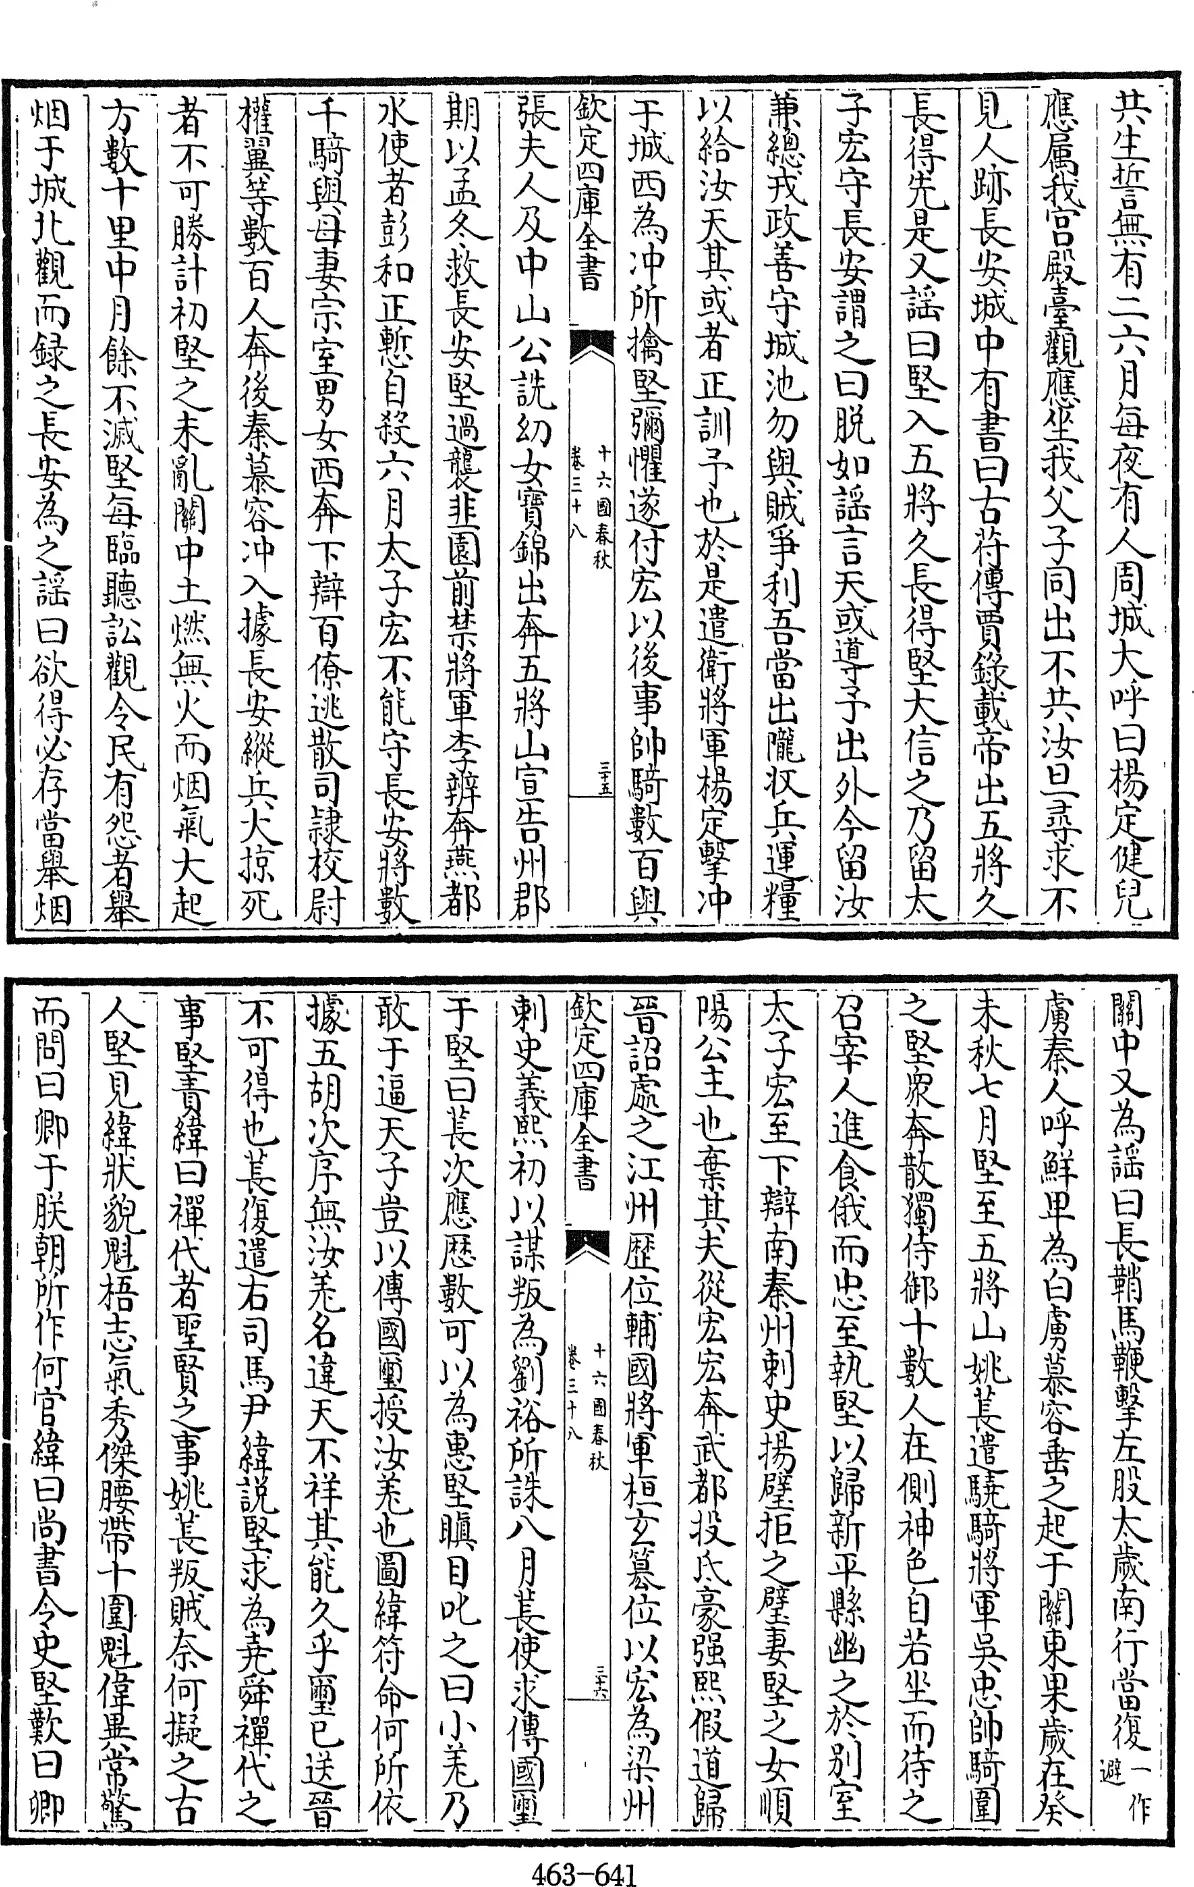 共生誓無有二六月每夜有人周城大呼曰楊定健兒
應屬我宮殿臺觀應坐我父子同出不共汝旦尋求不
見人跡長安城中有書曰古苻傳賈錄載帝出五將久
長得先是又謡曰堅入五將久長得堅大信之乃留太
子宏守長安謂之曰脱如謡言天或導予出外今留汝
兼總戎政善守城池勿與賊爭利吾當出隴收兵運糧
以給汝天其或者正訓予也於是遣衛將軍楊定擊冲
于城西為冲所擒堅彌懼遂付宏以後事帥騎數百與
欽定四庫全書
十六國春秋
卷三十八
三十五
張夫人及中山公詵幼女寶錦出奔五將山宣告州郡
期以孟冬救長安堅過襲韭園前禁將軍李辨奔燕都
水使者彭和正慙自殺六月太子宏不能守長安將數
千騎與母妻宗室男女西奔下辯百僚逃散司隷校尉
權翼等數百人奔後秦慕容冲入據長安縱兵大掠死
者不可勝計初堅之未亂關中土燃無火而烟氣大起
方數十里中月餘不滅堅每臨聽訟觀令民有怨者舉
烟于城北觀而録之長安為之謡曰欲得必存當舉烟
關中又為謡曰長鞘馬鞭擊左股太歲南行當復一作避
虜秦人呼鮮卑為白虜慕容垂之起于關東果歲在癸
未秋七月堅至五將山姚萇遣驍騎將軍吳忠帥騎圍
之堅衆奔散獨侍御十數人在側神色自若坐而待之
召宰人進食俄而忠至執堅以歸新平縣幽之於别室
太子宏至下辯南秦州刺史揚璧拒之璧妻堅之女順
陽公主也棄其夫從宏宏奔武都投氐豪强熙假道歸
晉詔處之江州歴位輔國將軍桓玄簒位以宏為梁州
欽定四庫全書
十六國春秋
卷三十八
三十六
刺史義熙初以謀叛為劉裕所誅八月萇使求傳國璽
于堅曰萇次應歴數可以為惠堅瞋目叱之曰小羌乃
敢于逼天子豈以傳國璽授汝羌也圖緯符命何所依
據五胡次序無汝羌名違天不祥其能久乎璽已送晉
不可得也萇復遣右司馬尹緯説堅求為堯舜禪代之
事堅責緯曰禪代者聖賢之事姚萇叛賊奈何擬之古
人堅見緯狀貌魁梧志氣秀傑腰帶十圍魁偉異常驚
而問曰卿于朕朝所作何官緯曰尚書令史堅歎曰卿
463-641